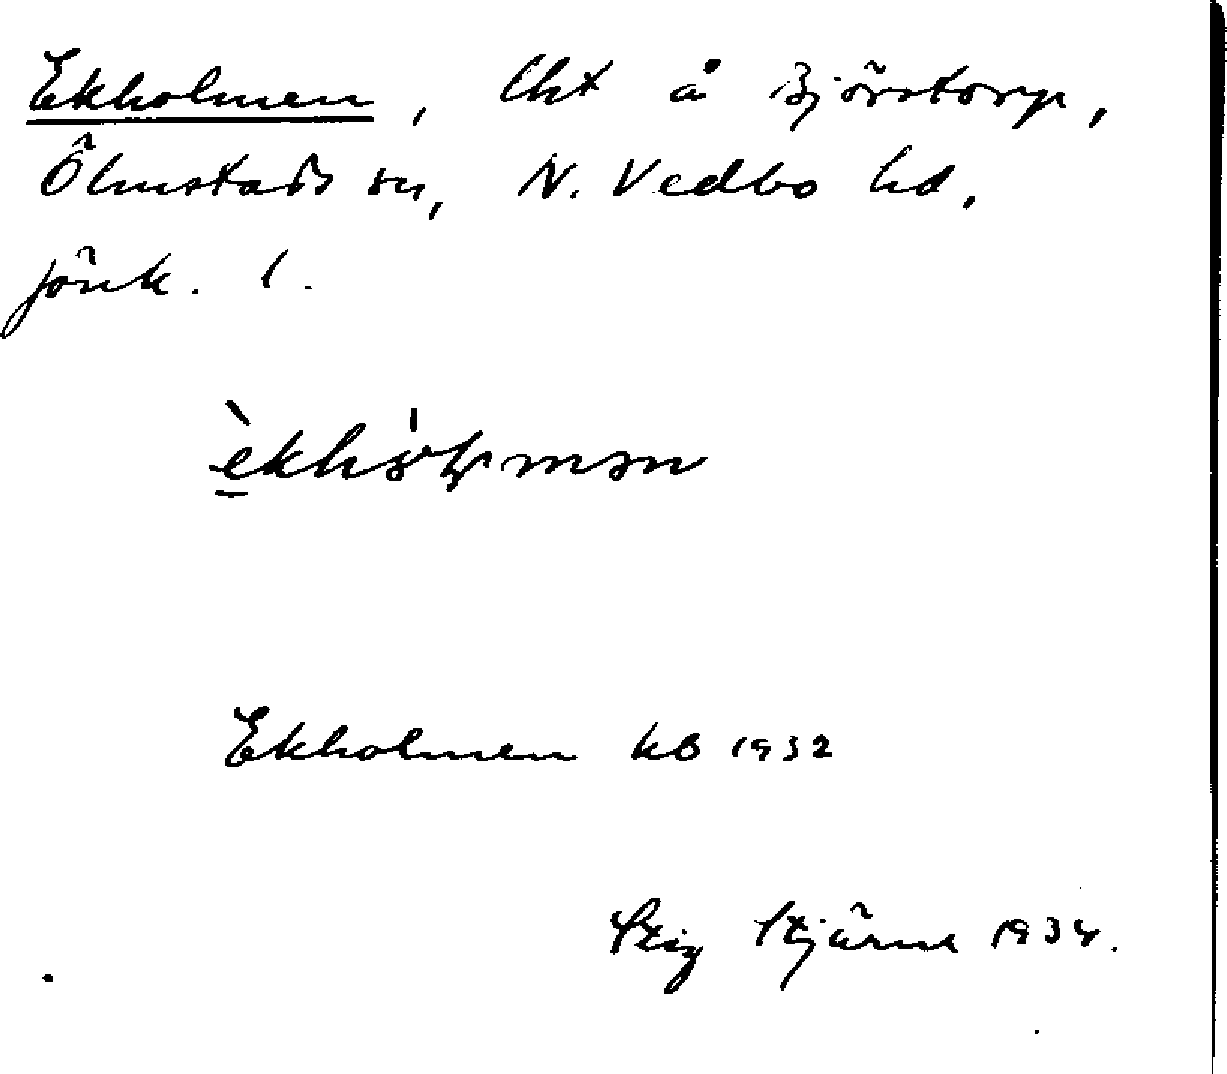 Ekholmen, lht å Björstorp,
Ölmstads sn, N. Vedbo hd,
Jönk. l.
Ekholmen kb 1932
Stig Stjärne 1934.